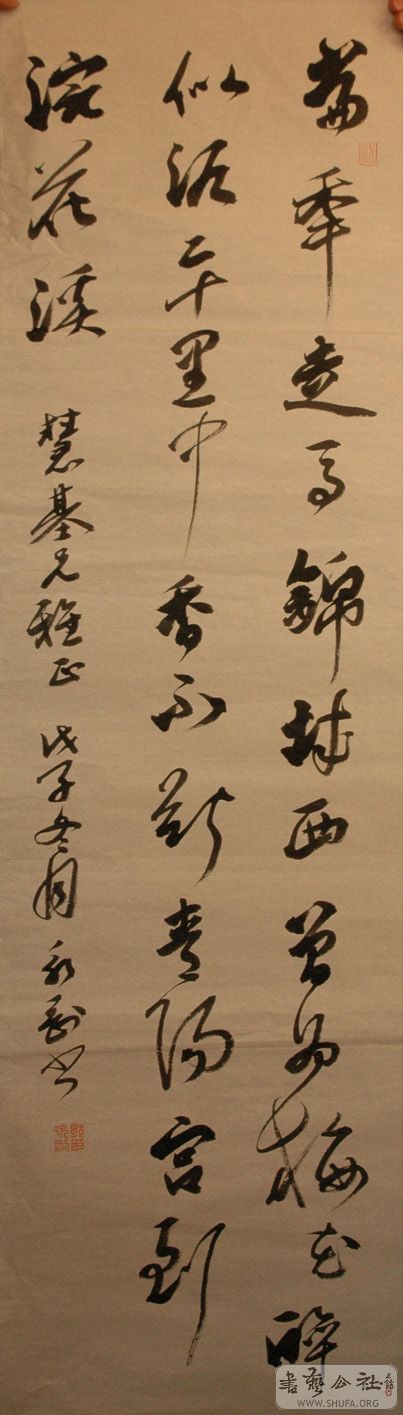 當年走馬錦城西曾為梅花醉
似泥二十里中香不斷青陽宮到
浣花溪
慧基兄雅正 戊子冬月 書
書藝公社
WWW.SHUFA.ORG